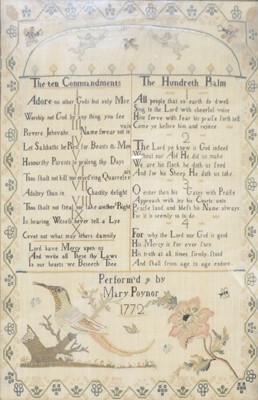 The ten Commandments
Adore no other Gods but only Me
Worship not God by any thing you see
Revere Jehovahs Name swear not in vain
Let Sabbaths be Rest for Beasts & Men
Honour thy Parents to prolong thy Days
Thou shalt not kill nor
Adultry shun in Chastity delight
Thou shalt not Steal nor take another's Right
In bearing Witness never tell a Lye
Covet not what may others damnify
Lord have Mercy upon us
And write all These thy Laws
In our hearts we Beseech Thee
The Hundreth Psalm
All people that on earth do dwell
Sing to the Lord with cheerful voice
Him serve with fear his praise forth tell
Come ye before him and rejoice
2
The Lord ye know is God indeed
Without our Aid He did us make
We are his flock he doth us feed
And for his Sheep He doth us take
3
O enter then his Gates with Praise
Approach with joy his Courts unto
Praise laud and bless his Name always
For it is seemly so to do
4
For why the Lord our God is good
His Mercy is for ever sure
His truth at all times firmly stood
And shall from age to age endure
Perform'd by
Mary Poynor
1772